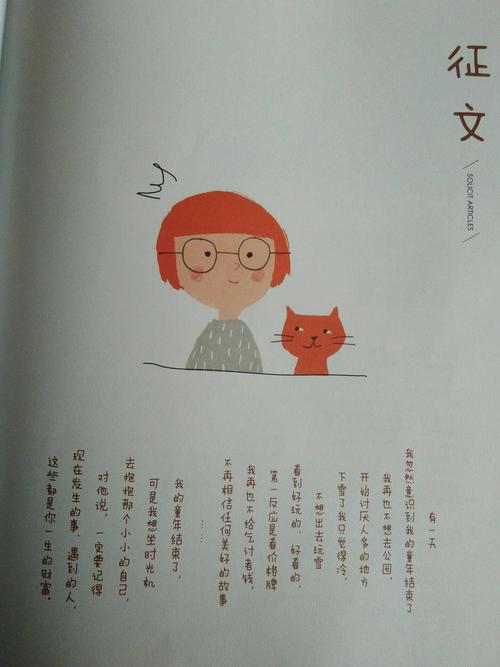 征文
\ SOLICIT ARTICLES /
有一天
我忽然意识到我的童年结束了
我再也不想去公园，
开始讨厌人多的地方
下雪了我只觉得冷，
不想出去玩雪
看到好玩的、好看的，
第一反应是看价格牌
我再也不给乞讨者钱，
不再相信任何美好的故事
……
我的童年结束了，
可是我想坐时光机
去抱抱那个小小的自己，
对他说，一定要记得
现在发生的事、遇到的人，
这些都是你一生的财富。